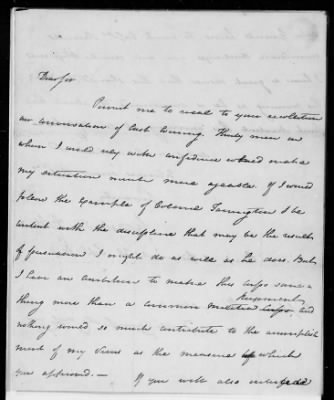 Dear Sir
Permit me to recal to your recollection
our conversation of last evening. Thirty men on
whom I could rely with confidence would make
my situation much more agreable. If I would
follow the Example of Colonel Farrington & be
content with the discipline that may be the result
of persuasion I might do as well as he does. But
I have an ambition to make this Corps some-
thing more than a common Regiment and
nothing would so much contribute to the accomplish
ment of my views as the measure of which
you approved.— If you will also